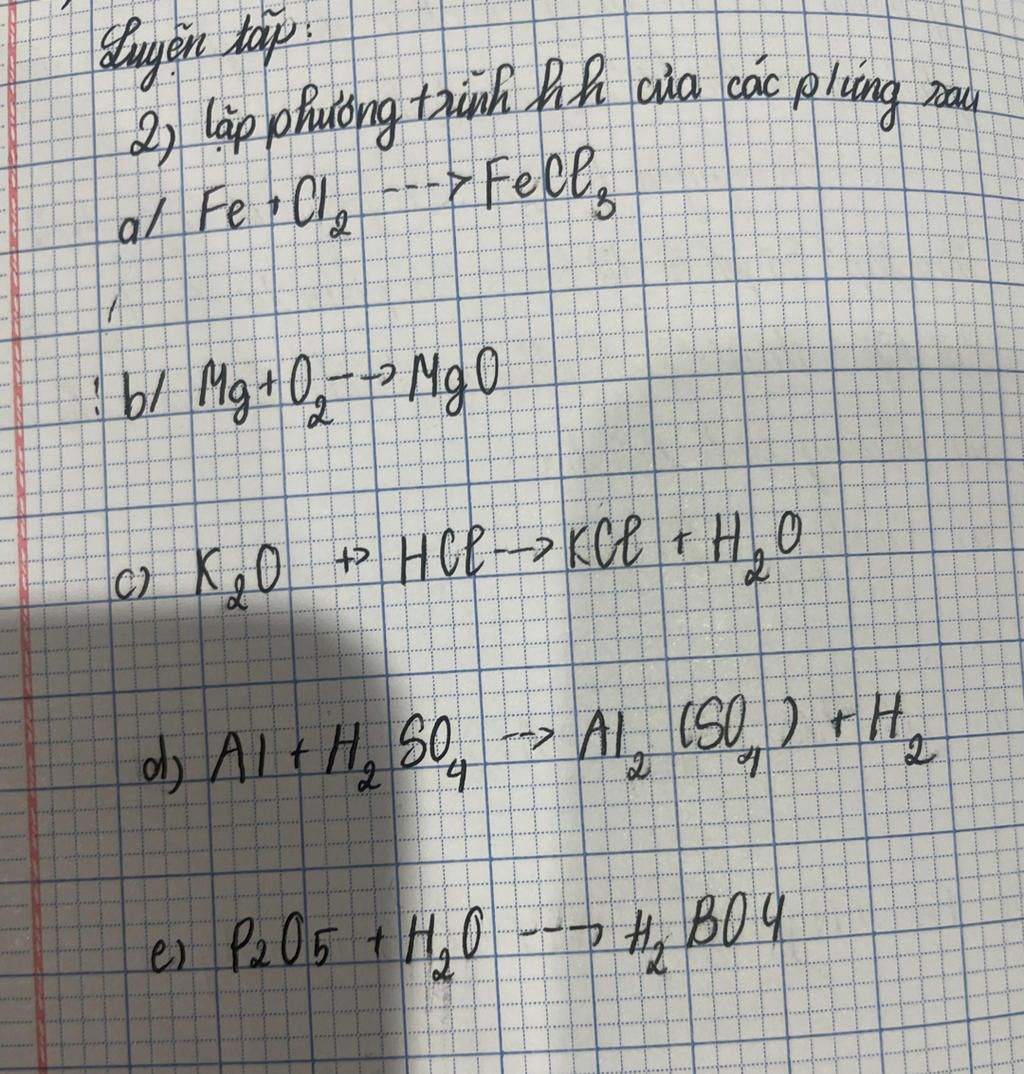 Luyện tập:
2) lập phương trình hh của các p/ứng sau
a/ Fe + Cl₂ ---> FeCl₃
b/ Mg + O₂ --> MgO
c) K₂O +> HCl --> KCl + H₂O
d) Al + H₂SO₄ --> Al₂(SO₄) + H₂
e) P2O5 + H₂O ---> H₂BO4